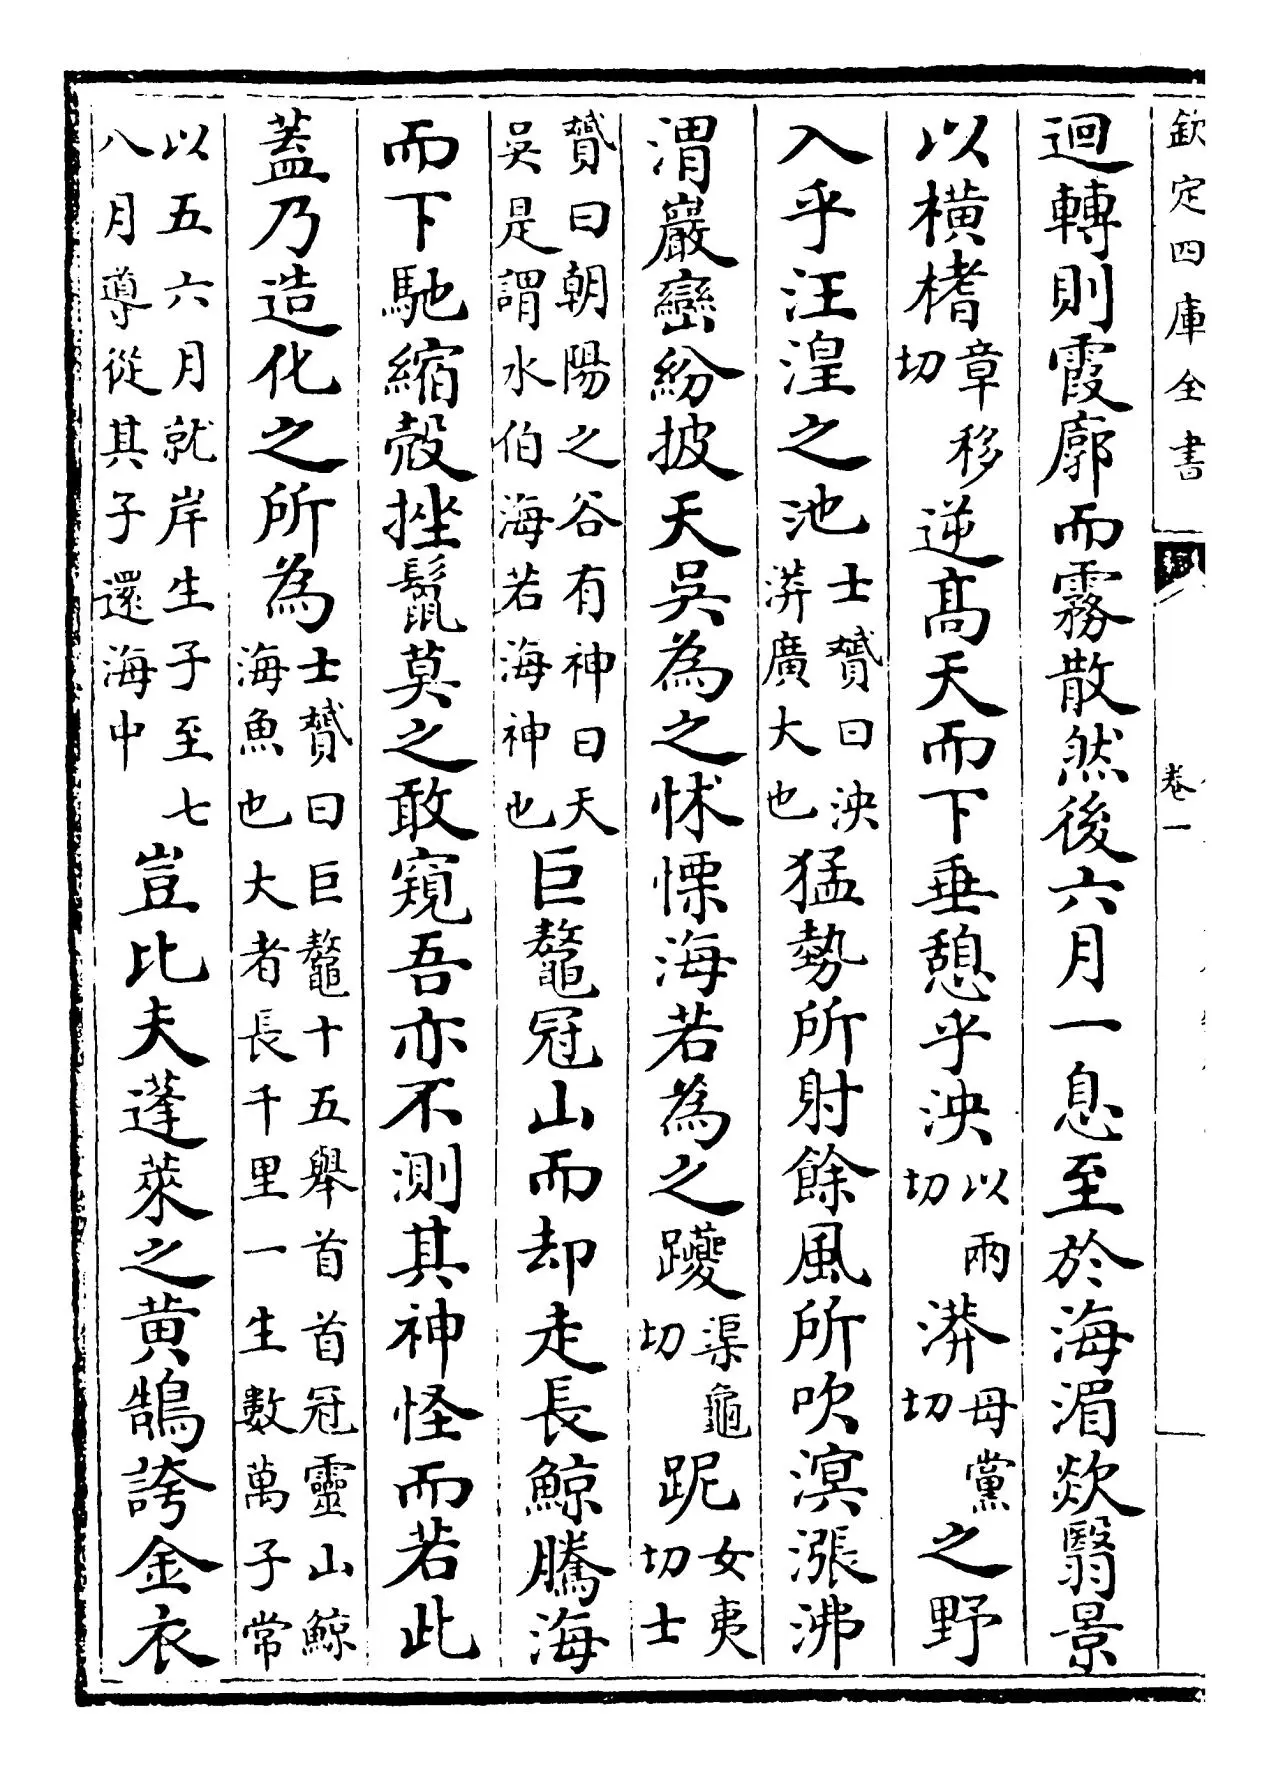 欽定四庫全書
卷一
迴轉則霞廓而霧散然後六月一息至於海湄欻翳景
以橫㨋章移切逆髙天而下垂憩乎泱以兩切漭母黨切之野
入乎汪湟之池士贇曰泱漭廣大也猛勢所射餘風所吹溟漲沸
渭巖巒紛披天吳為之怵慄海若為之躨渠龜切跜女夷切士
贇曰朝陽之谷有神曰天吳是謂水伯海若海神也巨鼇冠山而却走長鯨騰海
而下馳縮殻挫鬛莫之敢窺吾亦不測其神怪而若此
蓋乃造化之所為士贇曰巨鼇十五舉首首冠靈山鯨海魚也大者長千里一生數萬子常
以五六月就岸生子至七八月導從其子還海中豈比夫蓬萊之黄鵠誇金衣